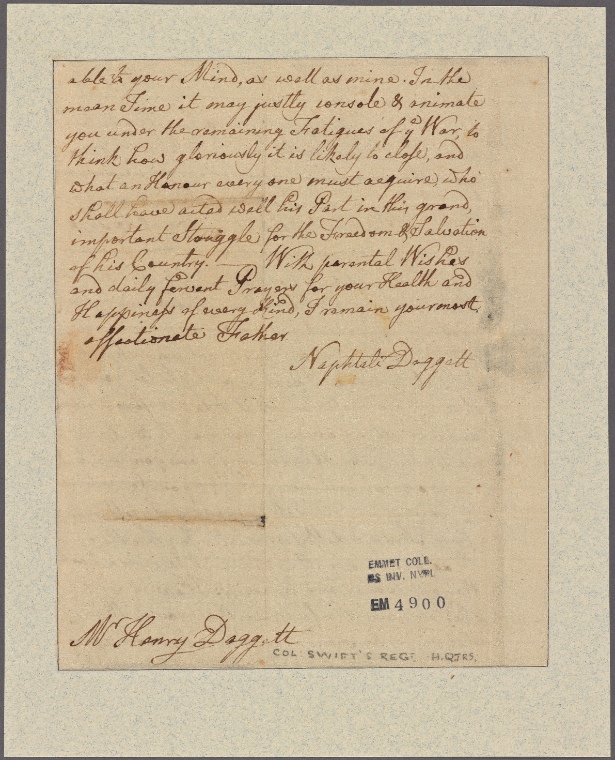 able to your Mind, as well as mine. In the
mean Time it may justly console & animate
you under the remaining Fatigues of yͤ War, to
think how gloriously it is likely to close, and
what an Honour every one must acquire who
shall have acted well his Part in this grand,
important Struggle for the Freedom & Salvation
of his Country. — With parental Wishes
and daily fervent Prayers for your Health and
Happiness of every Kind, I remain your most
affectionate Father
Naphtali Daggett
EMMET COLL.
MS INV. NYPL
EM 4900
Mr Henry Daggett
COL. SWIFT'S REGT H.QTRS.